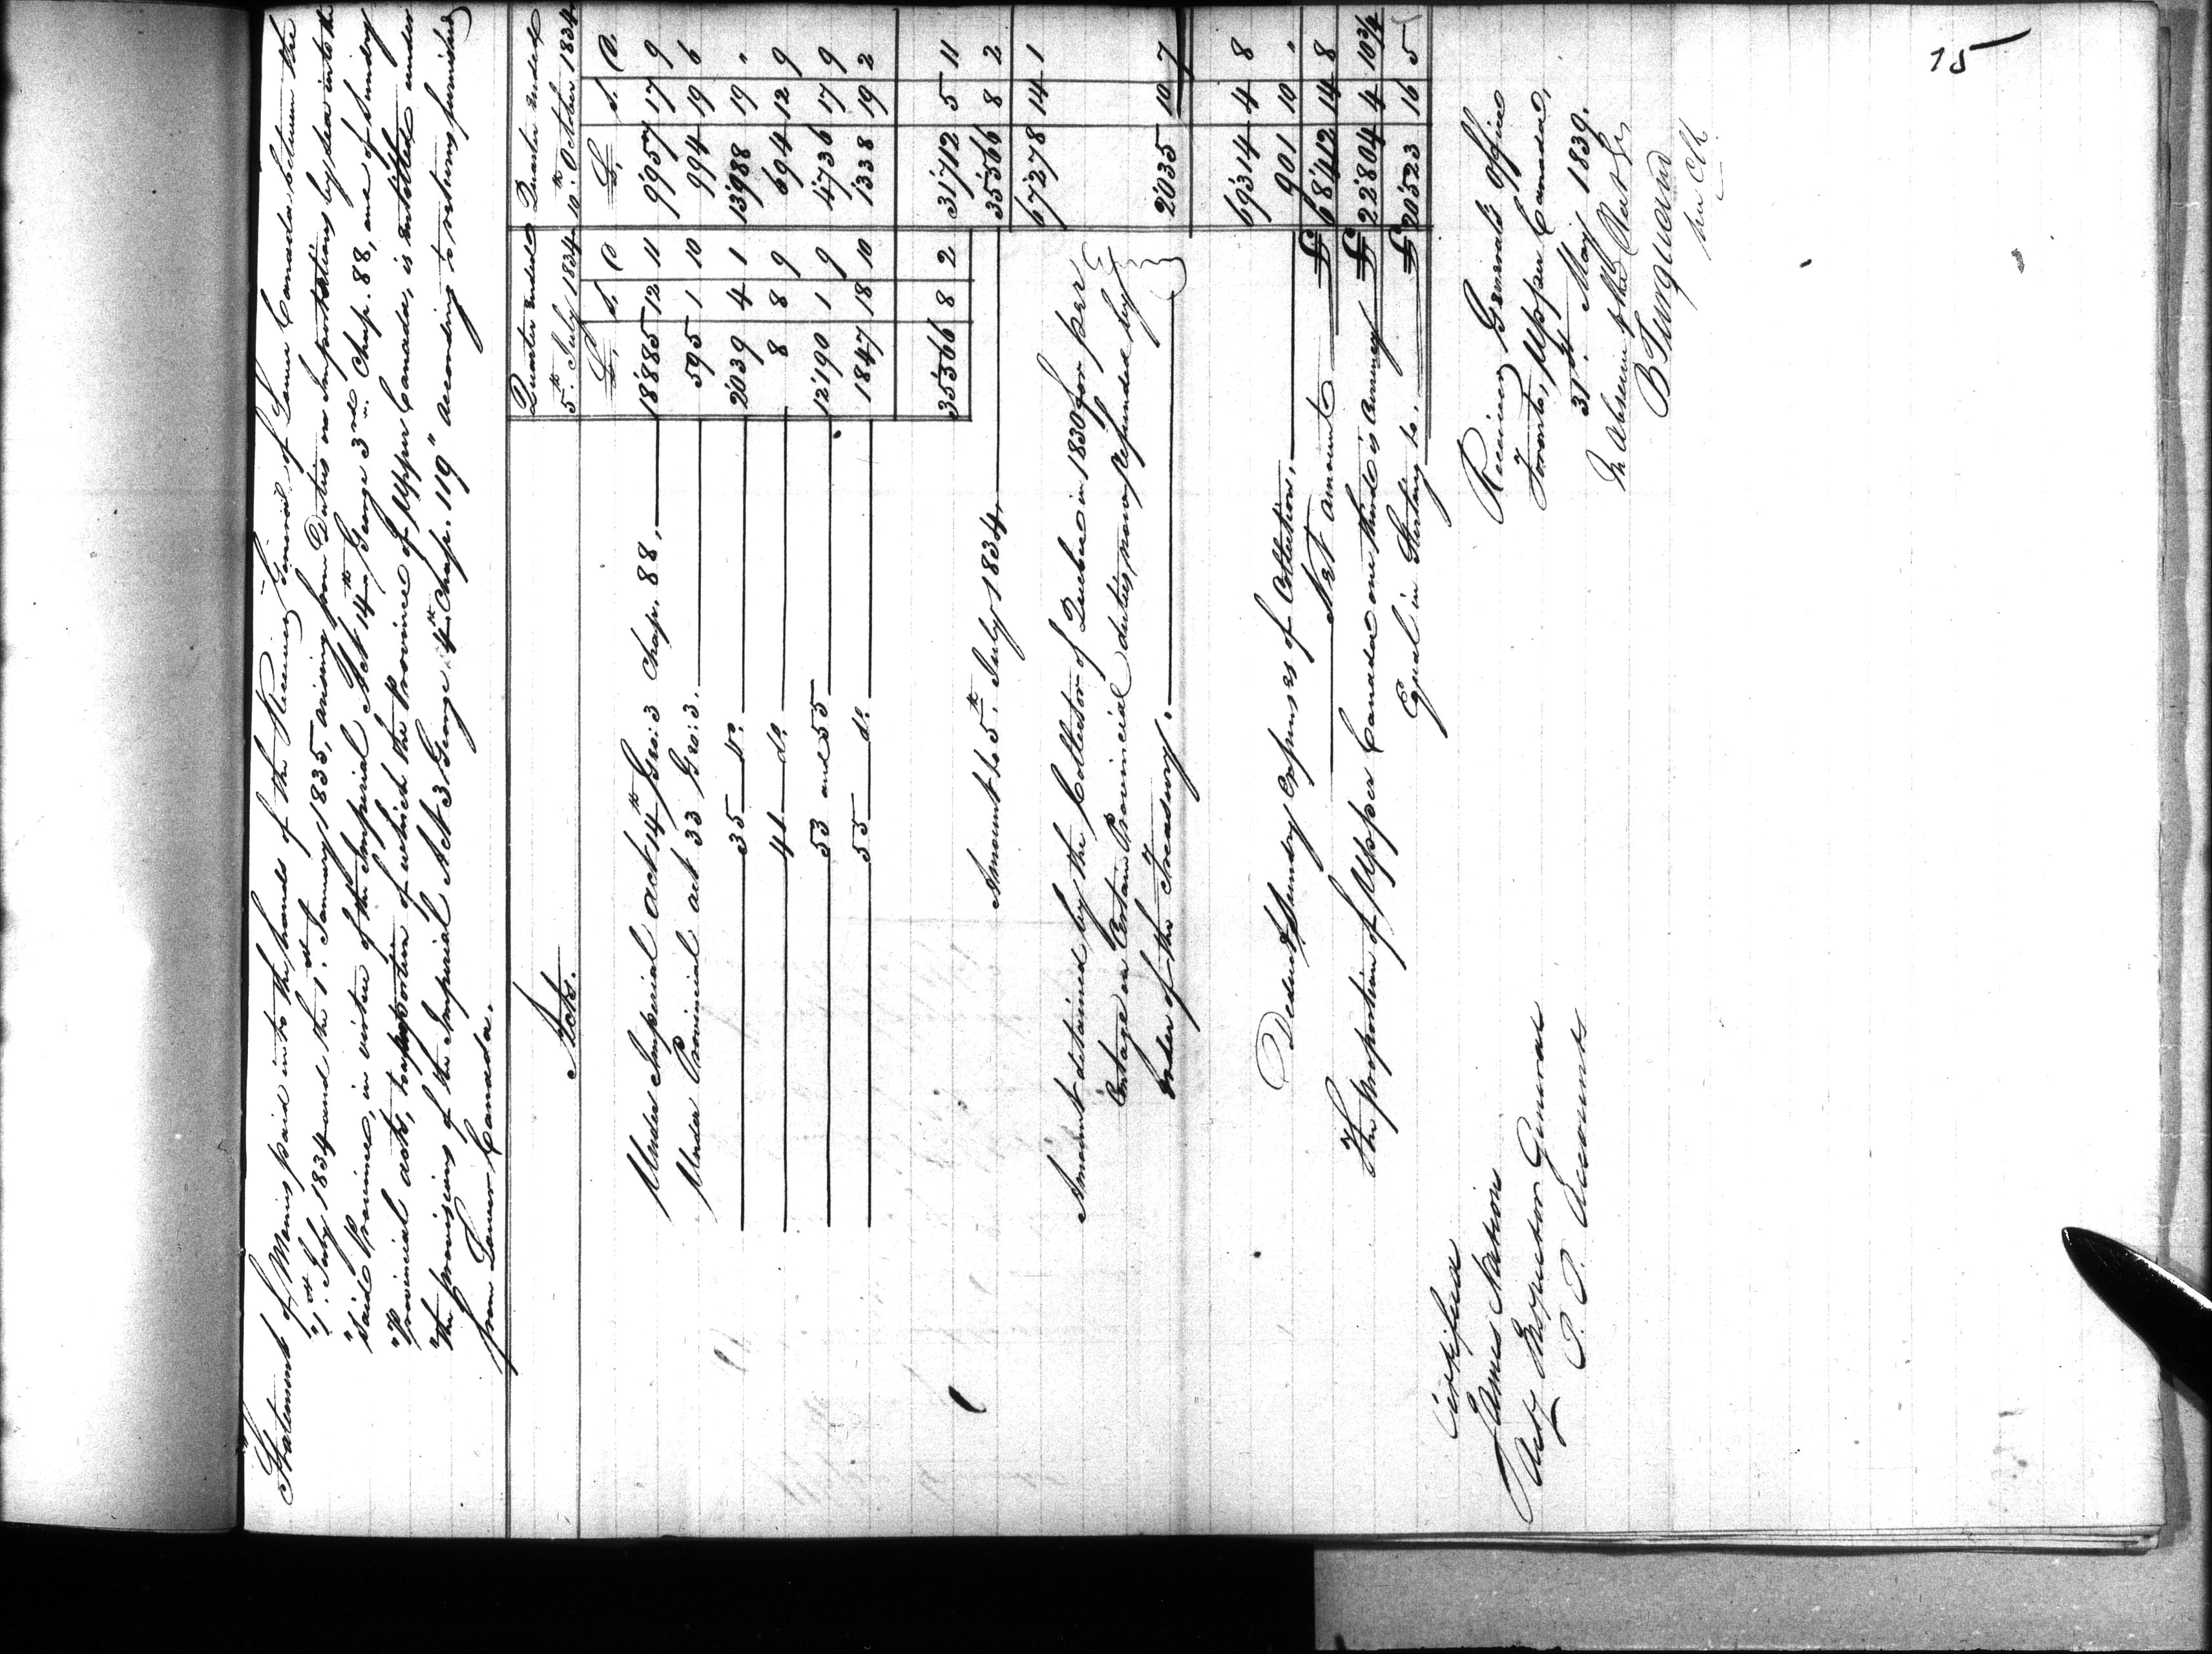 "Statement of Monies paid into the hands of the Receiver General of Lower Canada between the
"1st. July 1834 and the 1st. January 1835, arising from Duties on Importations by sea into the
"said Province, in virtue of the Imperial Act 14th George 3rd Chap. 88, and of sundry
"Provincial acts, to a proportion of which the Province of Upper Canada, is entitled under
"the provisions of the Imperial Act 3 George 4th Chap. 119" according to returns furnished
from Lower Canada.
Acts. Quarter ended 5th. July 1834 Quarter ended 10th. October 1834
£. S. D £. S. D.
Under Imperial act 14th Geo: 3 Chap. 88, 18'885 12 11 9'957 17 9
Under Provincial act 33 Geo: 3. 595 1 10 994 19 6
35 do. 2'039 4 1 13'988 19 "
41 do. 8 8 9 694 12 9
53 and 55 12'190 1 9 4'736 17 9
55 do. 1'847 18 10 1'338 19 2
35'566 8 2 31'712 5 11
Amount to 5th. July 1834, 35'566 8 2
67'278 14 1
Amount detained by the Collector of Quebec in 1830 for per
Centage on Certain Provincial duties, now refunded by
order of the Treasury. 2'035 10 7
69'314 4 8
Deduct Sundry Expenses of Collection, 901 10 "
Net amount £ 68'412 14 8
The proportion of Upper Canada one third is Currency £ 22'804 4 10¾
Equal in Sterling to. £ 20'523 16 5
Receiver General's Office
Toronto, Upper Canada,
31st. May 1839.
In absence of the
B Turquand
Certified
James Nation
Actg Inspector General
P. P. Accounts
15